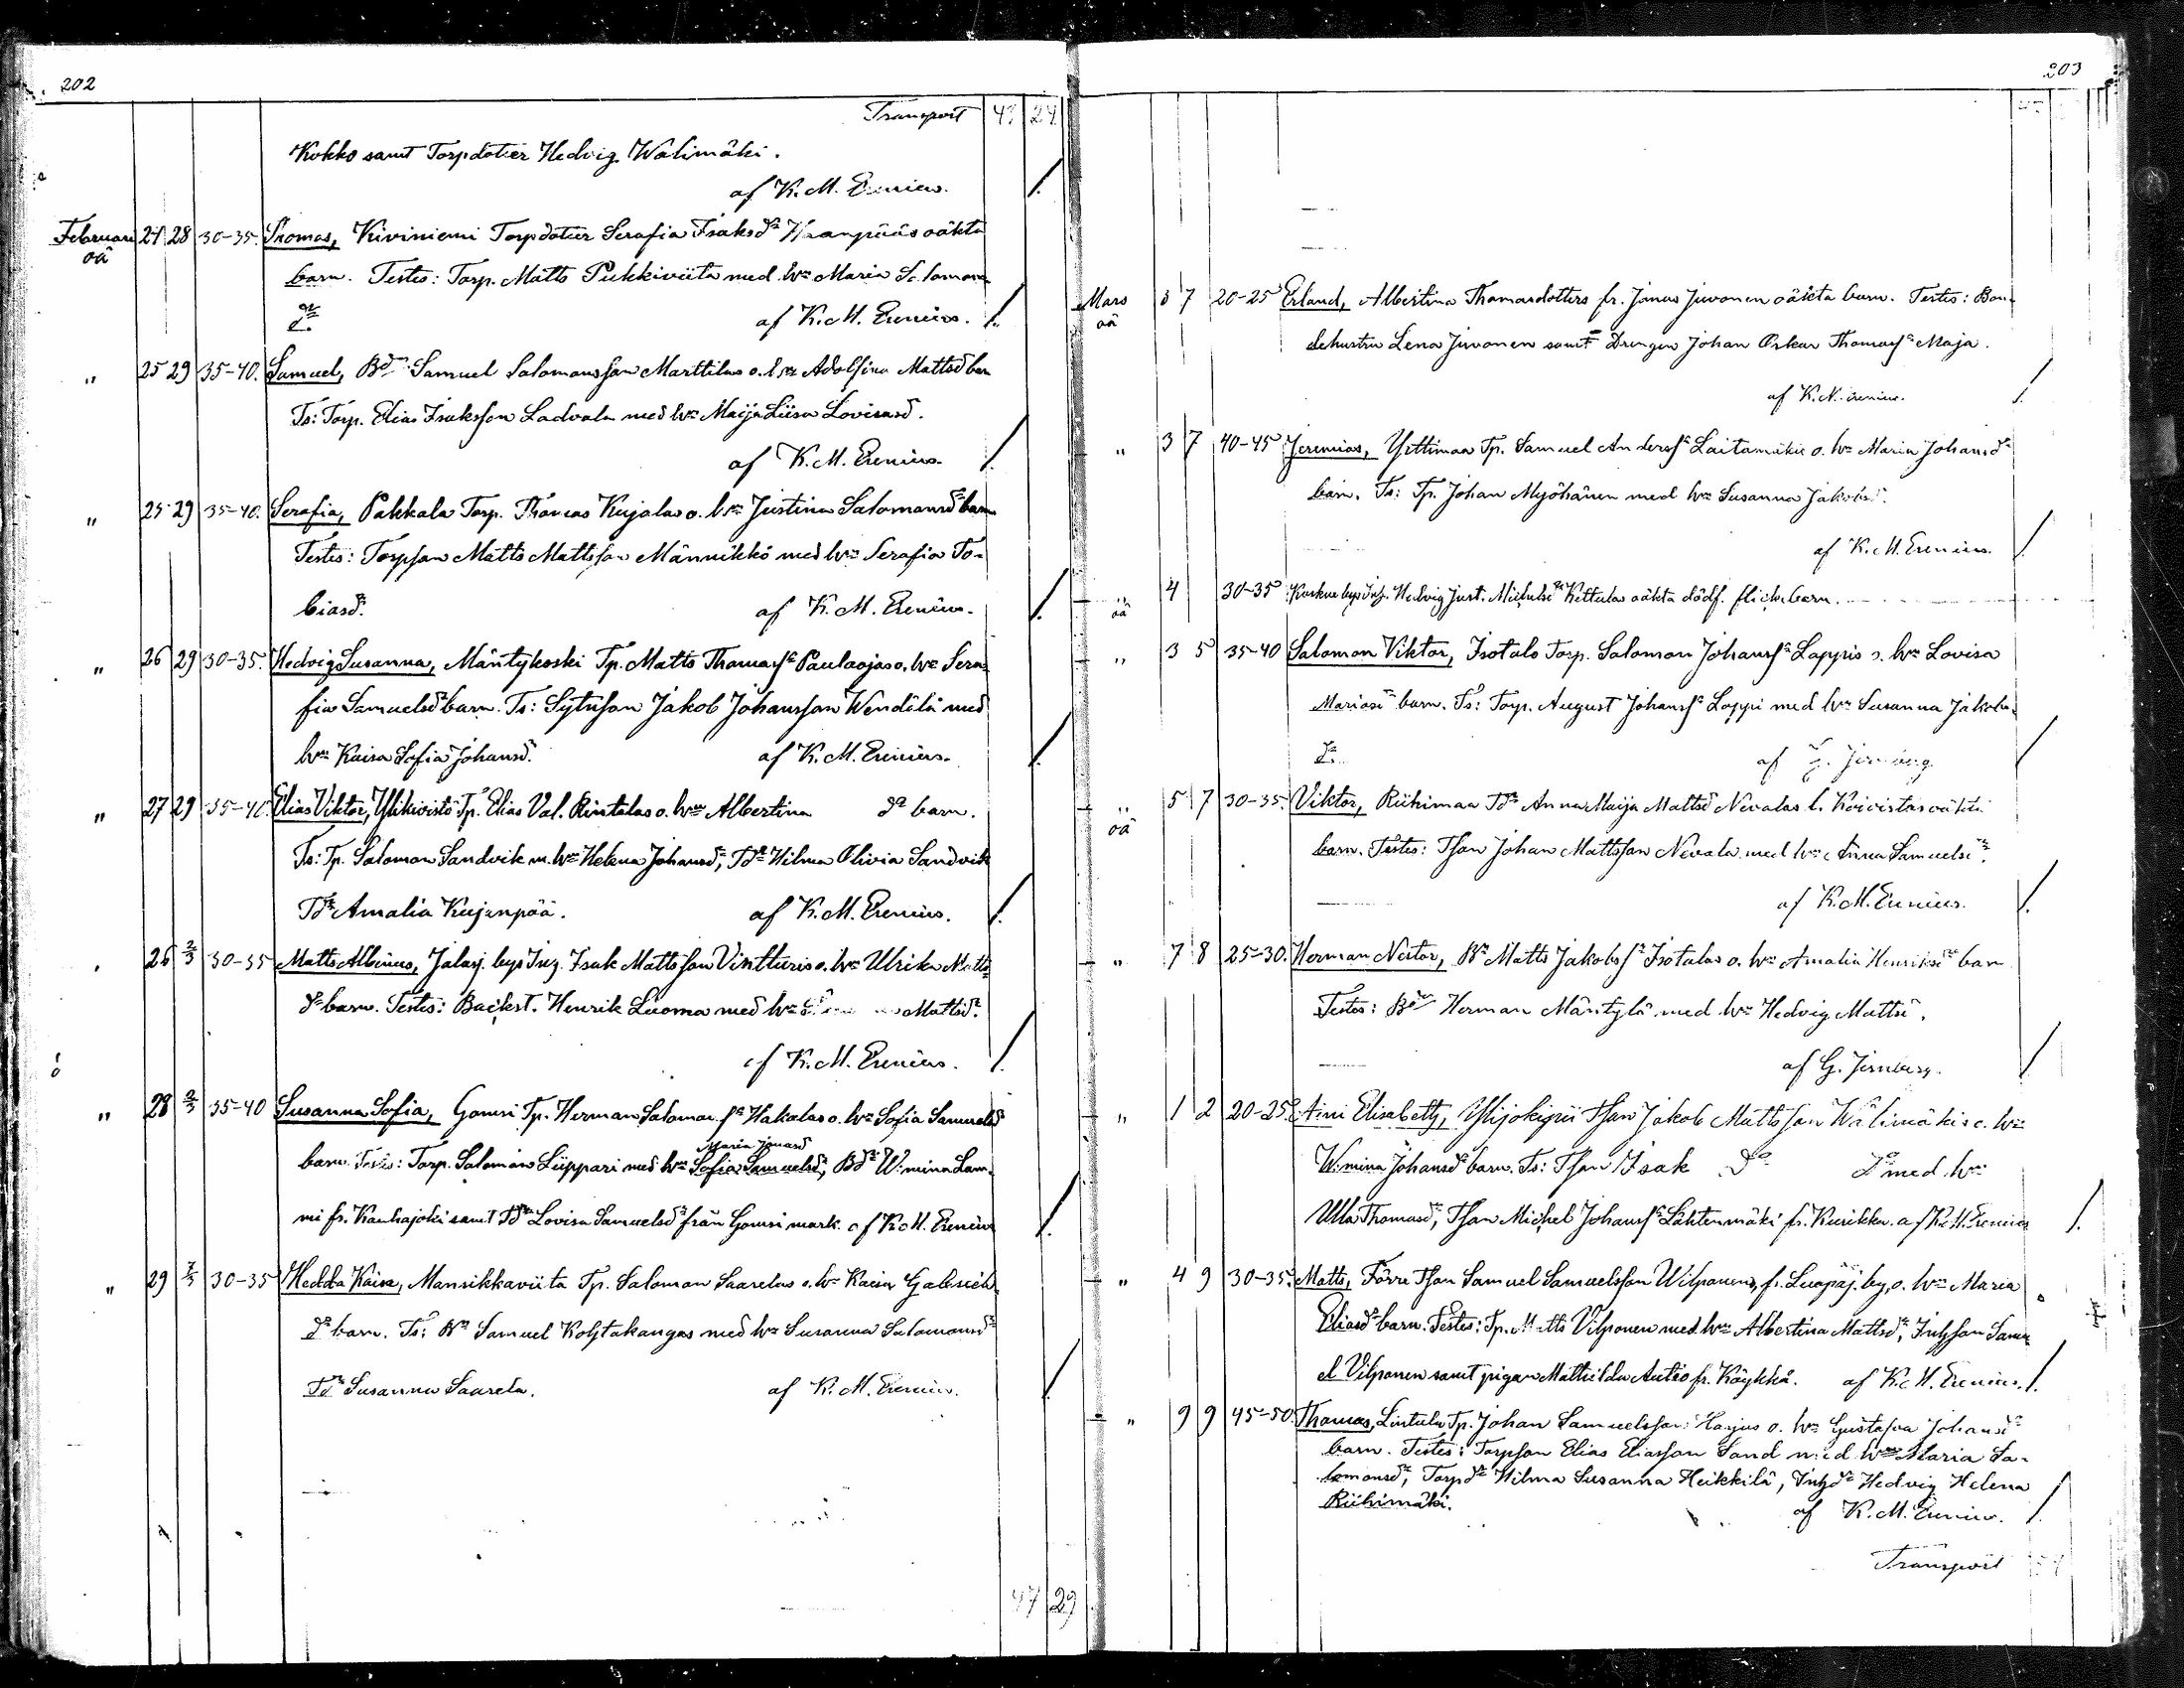 202
Transport 43 24
Kokko samt Torpdotter Hedvig Walimäki.
af K. M. Erenius.
Februari 24 28 30-35. Thomas, Kiviniemi Torpdotter Serafia Isaksdr Haanpääs oäkta
oä
barn. Testes: Torp. Matts Pukkiviita med hn Maria Salomons
dr. af K. M. Erenius.
" 25 29 35-40. Samuel, Bdn Samuel Salomonsson Marttilas o. hn Adolfina Mattsd barn
Ts: Torp. Elias Isaksson Ladvala med hn Maija Liisa Lovisasd.
af K. M. Erenius.
" 25 29 35-40. Serafia, Pakkala Torp. Thomas Kujalas o. hn Justina Salomonsdr barn
Testes: Torpson Matts Mattsson Männikkö med hn Serafia To-
biasdr. af K. M. Erenius.
" 26 29 30-35. Hedvig Susanna, Mäntykoski Tp. Matts Thomass Paulaojas o. hn Sera-
fia Samuelsdr barn. Ts: Sytnson Jakob Johansson Wendälä med
hn Kaisa Sofia Johansd. af K. M. Erenius.
" 27 29 35-40. Elias Viktor, Ylikoisto Tp. Elias Val. Rintalas o. hn Albertina dr barn.
Ts: Tp. Salomon Sandvik m. hn Helena Johansdr, Tdr Hilma Olivia Sandvik
Tdr Amalia Kujanpää. af K. M. Erenius.
26 2/3 30-35 Matts Albinus, Jalasj. bys Inh. Isak Mattsson Vintturis o. hn Ulrika Matts
dr barn. Testes: Backst. Henrik Luoma med hn Mattsdr.
af K. M. Erenius.
" 28 2/3 35-40 Susanna Sofia, Gomsi Tp. Herman Salomonss Hakalas o. hn Sofia Samuelsd
Maria Jonasd
barn. Testes: Torp. Salomon Liippari med hn Sofia Samuelsdr, Bdr W:mina Lam-
mi fr. Kauhajoki samt Tdr Lovisa Samuelsdr från Gomsi mark. af K. M. Erenius
" 29 7/3 30-35 Hedda Kaisa, Mansikkaviita Tp. Salomon Saarelas o. hn Kaisa Gabriels
dr barn. Ts: Bn Samuel Koljtakangas med hn Susanna Salomonsdr
Tdr Susanna Saarela. af K. M. Erenius.
47 29
203
Mars 3 7 20-25 Erland, Albertina Thomasdotters fr. Jonas Juvonen oäkta barn. Testes: Bon-
oä
dehustru Lena Juvonen samt Drengen Johan Oskar Thomass Maja.
af K. M. Erenius.
" 3 7 40-45 Jeremias, Yttimaa Tp. Samuel Anderss Laitamäkis o. hn Maria Johansdr
barn. Ts: Tp. Johan Myöhänen med hn Susanna Jakobsd.
af K. M. Erenius.
" 4 30-35 Koskue bys Inh. Hedvig Just. Michelsdr Kettulas oäkta dödf. flickebarn.
oä
" 3 5 35-40 Salomon Viktor, Isotalo Torp. Salomon Johanss Loppis o. hn Lovisa
Mariasd barn. Ts: Torp. August Johanss Loppi med hn Susanna Jakobs-
dr. af G. Jernberg.
" 5 7 30-35. Viktor, Riihimaa Tdr Anna Maija Mattsd Nevalas l. Koivistos oäkta
oä
barn. Testes: Tson Johan Mattsson Nevala med hn Anna Samuelsdr.
af K. M. Erenius.
" 7 8 25-30. Herman Nestor, Bn Matts Jakobss Isotalas o. hn Amalia Henriksdr barn
Testes: Bdn Herman Mäntylä med hn Hedvig Mattsd.
af G. Jernberg.
" 1 2 20-25. Aini Elisabeth, Ylijokipii Tson Jakob Mattsson Wälimäkis o. hn
W:mina Johansdr barn. Ts: Tson Isak do do med hn
Ulla Thomasdr, Tson Michel Johanss Lähtenmäki fr. Kurikka. af K. M. Erenius
" 4 9 30-35. Matts, Förre Tson Samuel Samuelsson Wilponens, fr. Luopaj. by, o. hn Maria
Eliasdr barn. Testes: Tp. Matts Vilponen med hn Albertina Mattsdr, Inhson Samu-
el Vilponen samt pigan Mathilda Autio fr. Köykkä. af K. M. Erenius.
" 9 9 45-50. Thomas, Lintula Tp. Johan Samuelsson Harjus o. hn Gustafva Johansdr
barn. Testes: Torpson Elias Eliasson Sand med hn Maria Sa-
lomonsdr, Torpdr Hilma Susanna Heikkilä, Inhdr Hedvig Helena
Riihimäki. af K. M. Erenius.
Transport